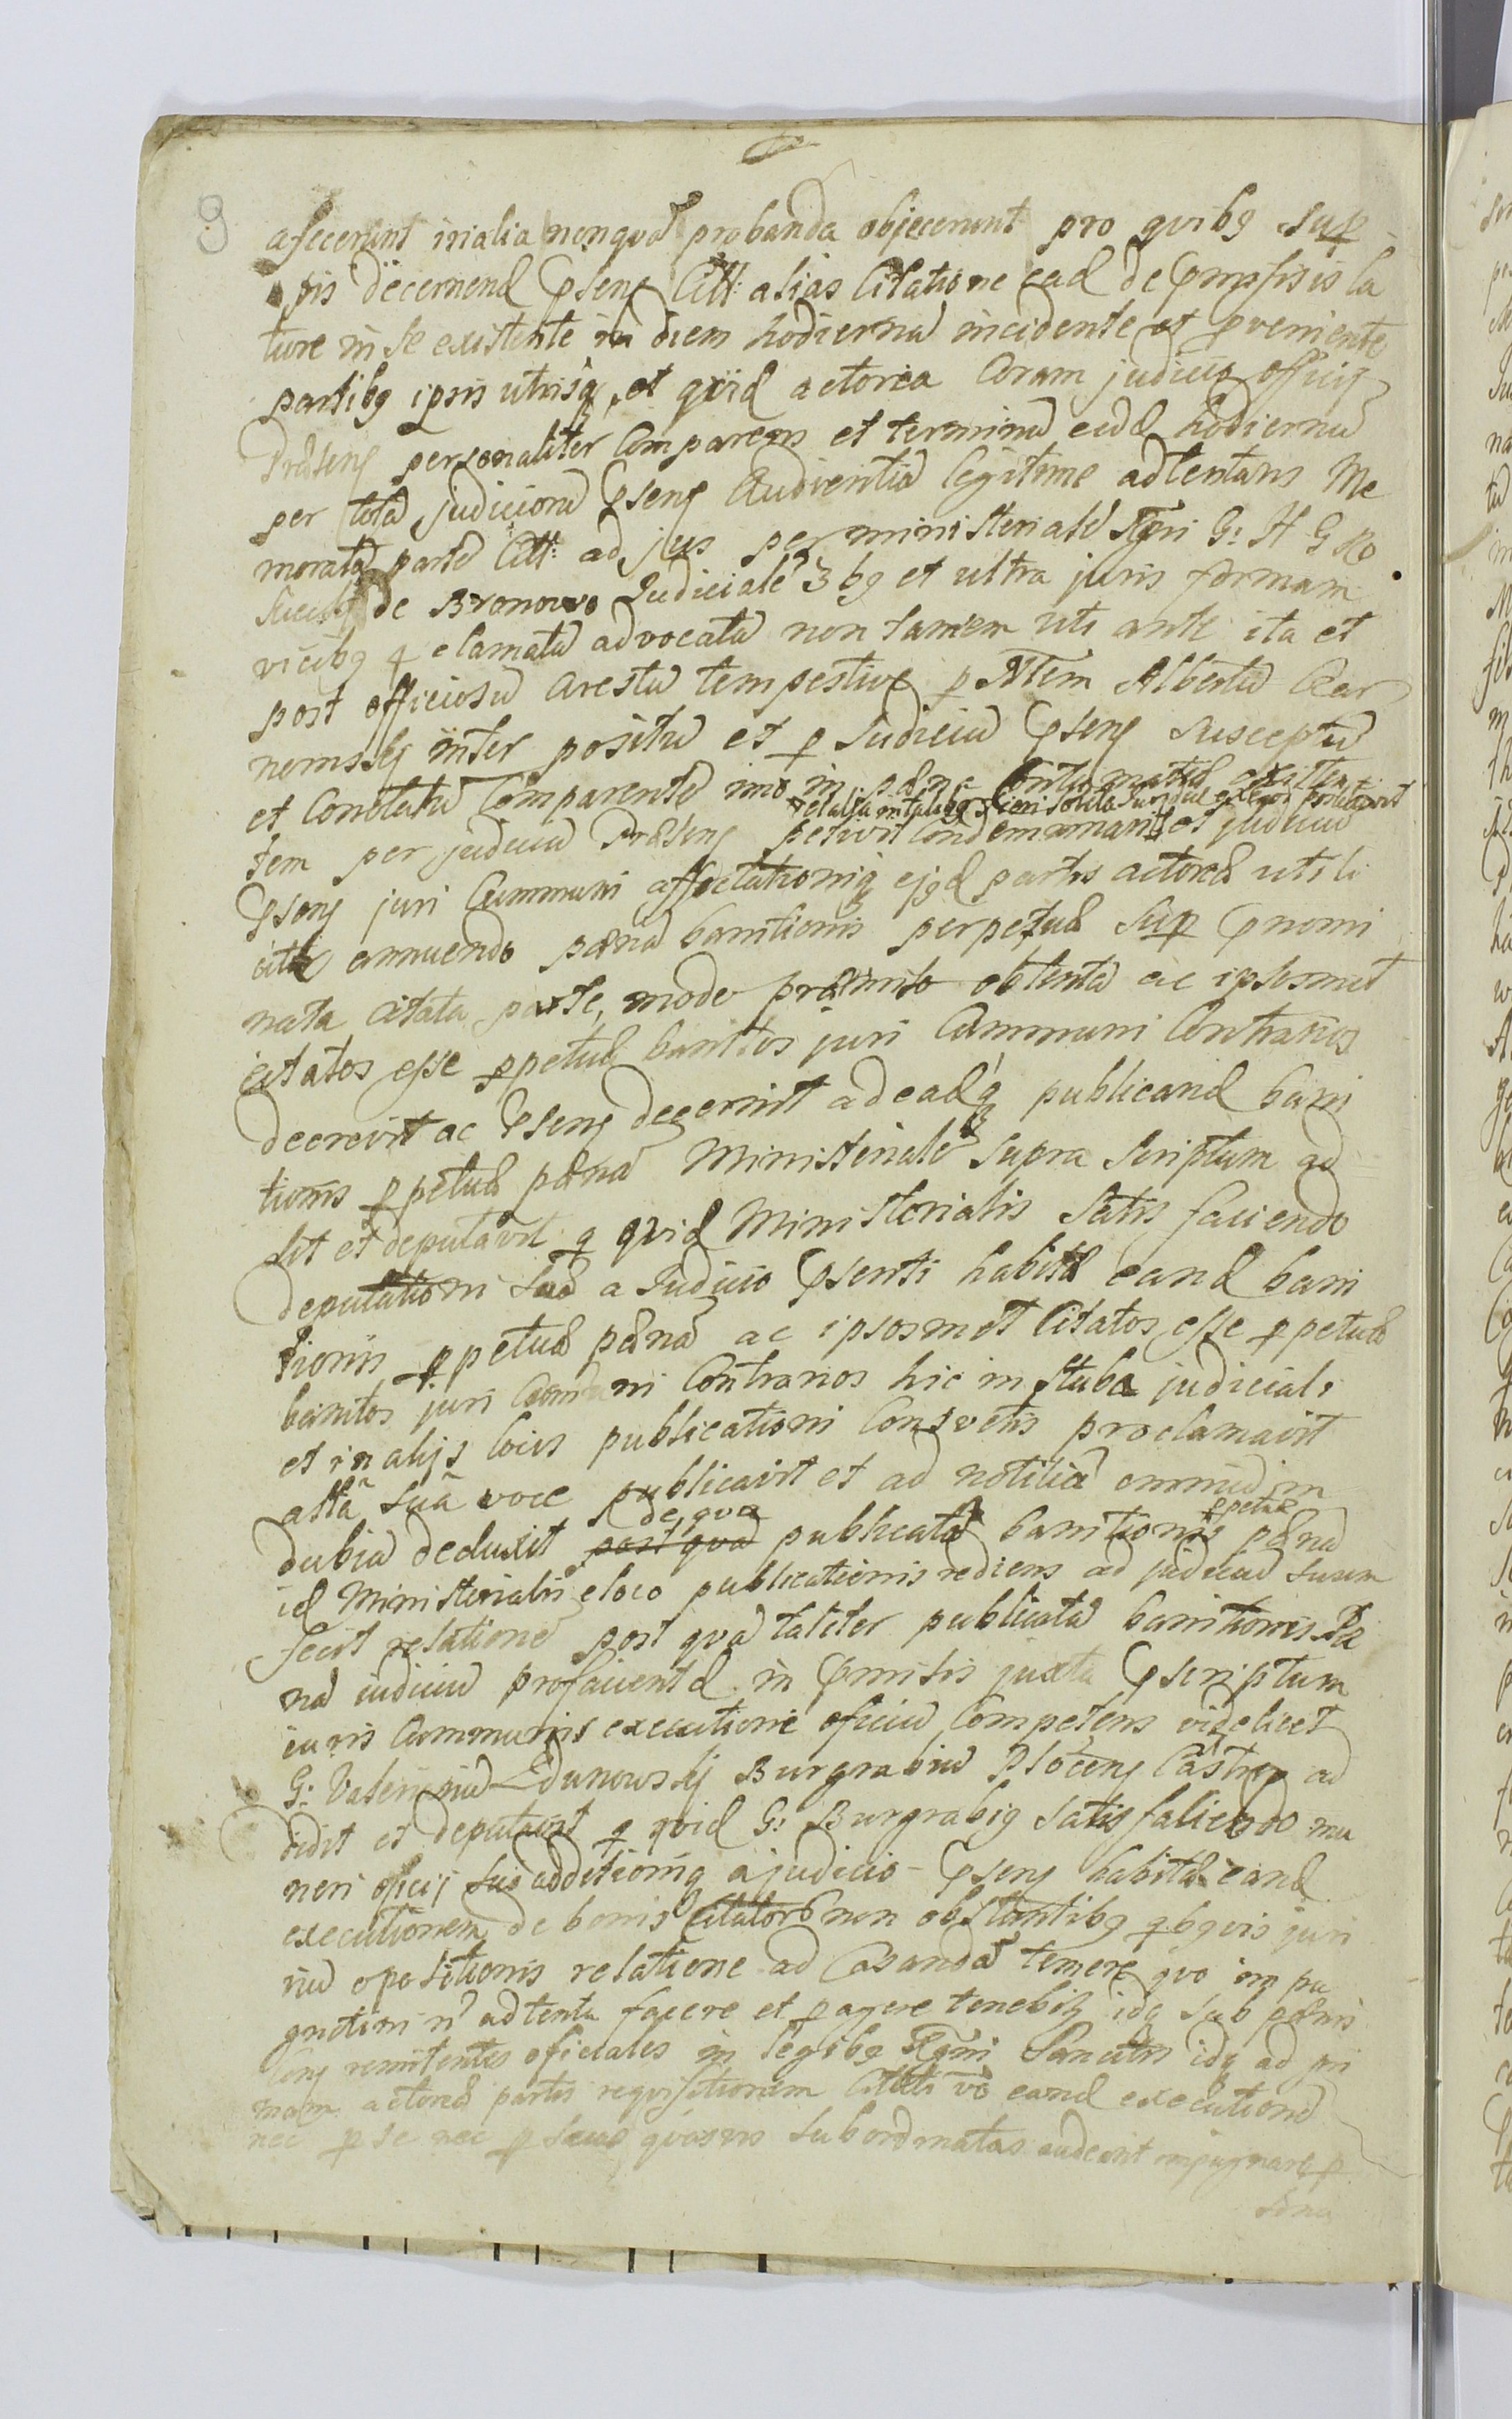 9
afecerunt inalia nonqvã probanda objecerunt pro qvibg sup
pis decernend Pseng Citt: alias Citatione ead de Pmissis la
tiore in se existente in diem hodiernã incidente et pveniente
partibg ipsis utrisq, et qvid actorea Coram judicio officij
Præseng personaliter Comparens et terminũ eũd hodiernũ
per totã judiciorũ Pseng Audientiã legitime adtentans Me
moratã partẽ Citt: ad jus per ministerialẽ Rgni G: H G Ro
de Bronowo Judicialẽ 3 bg et ultra juris formam
vicibg p clamatã advocatã non tamen uti ante ita et
post officiosũ Arestũ tempestive p Albertũ Czar
nomskij inter positũ et p Judiciũ Pseng Susceptũ
et Comparentẽ imo in pæna Contumatiæ existen
tem per judiciũ Præseng petivit Condemnnari et judiciũ
Pseng juri Cummuni affectationiq ejgd partis actoreæ utili
annuendo pænã banitionis perpetuæ Sup Pnomi
nata citata parte, modo præmisso obtentã ac ipsosmet
citatos esse ppetuæ banitos juri Cummuni Contrarios
decrevit ac Pseng decernit ad eadq publicand bani
tionis ppetuæ pænã Ministerialẽ Supra Scriptum ad
dit et deputavit q qvid Ministerialis Satis faciendo
deputationi suæ a Judicio Psenti habitæ eand bani
tionis ppetuæ pænã ac ipsosmet Citatos esse ppetuæ
banitos juri Communi Contrarios hic in stuba judiciali
et in alijs locis publicationi Consvetis proclamavit
altã suã voce publicavit et ad notitiã omniũ in
dubiã deduxit post qvã de qva publicatã banitionis ppetuæ pænã
id Ministerialis e loco publicationis rediens ad judiciũ suum
fecit relationẽ post qvã taliter publicatã banitionis Pæ
nã iudiciũ profaciend in Pmisis juxta Pscriptum
iuris Communis executione oficiũ Competens videlicet
G: Valerianũ Burgrabiũ Ploceng Castren ad
didit et deputavit q qvid G: Burgrabig Satis faciendo mu
neri oficij suo additioniq a judicio Pseng habitæ eand
executionem de bonis Citatorũ non obstantibg qbgvis juri
um opositionis relatione ad Casandã temere qvo impu
gnatini adtenta facere et pagere tenebitz idq sub pænis
remitentes oficiales in legibg Rgni Sancitis idq ad pri
mam actoreæ partis reqvisitionem Citati vo eand executionẽ
nec p se nec p suas qvasvis Subordinatas audeant impugnare p